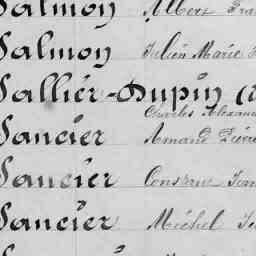 Salmon Albert Fran
Salmon Julien Marie
Sallier-Dupin (
Charles Alexand
Sancier Armand Pierre
Sancier Constant Jean
Sancier Michel Je